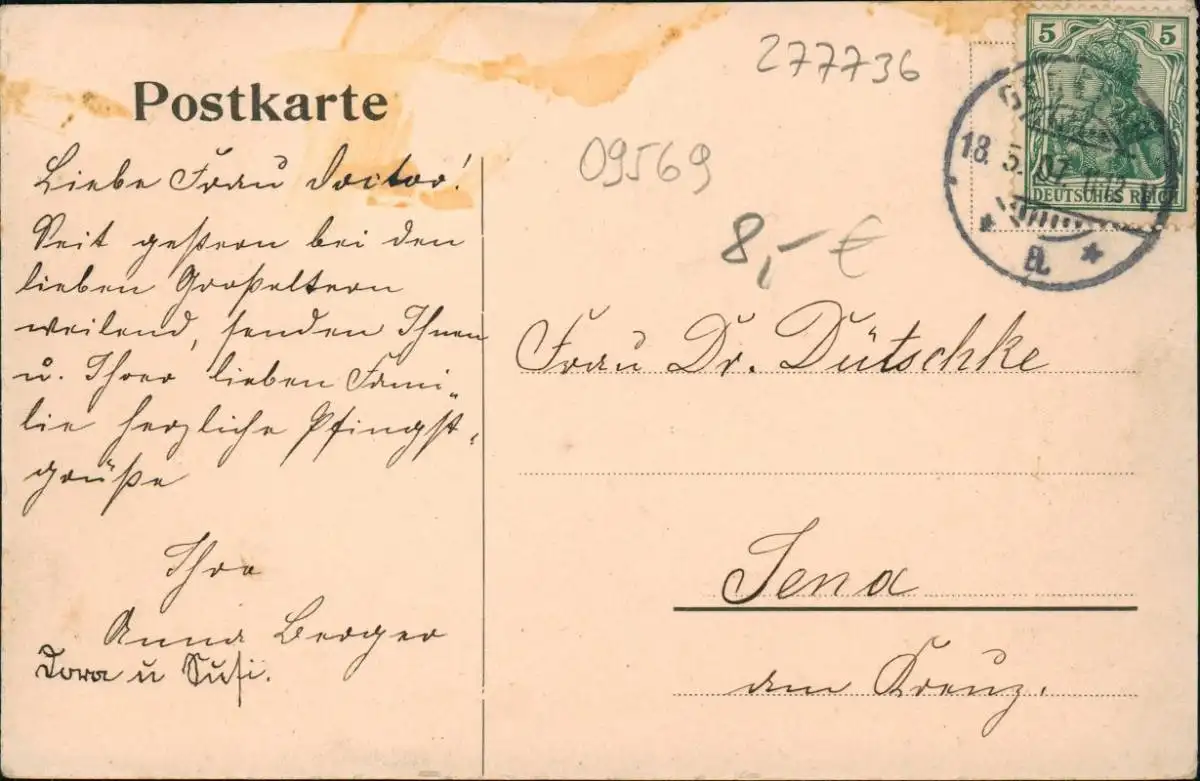 Postkarte
277736
09569
8,- €
5 5
DEUTSCHES REICH
18. 5. 07.
a.
Liebe Frau Doctor!
Seit gestern bei den
lieben Großeltern
weilend, senden Ihnen
u. Ihrer lieben Fami-
lie herzliche Pfingst-
grüße
Ihre
Anna Berger
Dora u Susi.
Frau Dr. Dütschke
Jena
am Kreuz.